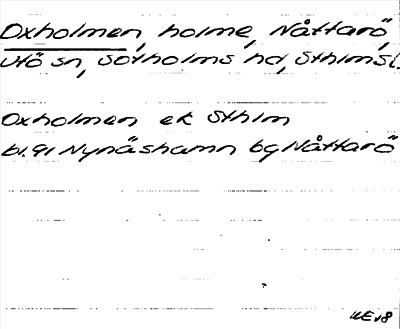 Oxholmen, holme, Nåttarö,
Utö sn, Sotholms hd, Sthlms l.
Oxholmen ek Sthlm
bl. 91 Nynäshamn bg Nåttarö